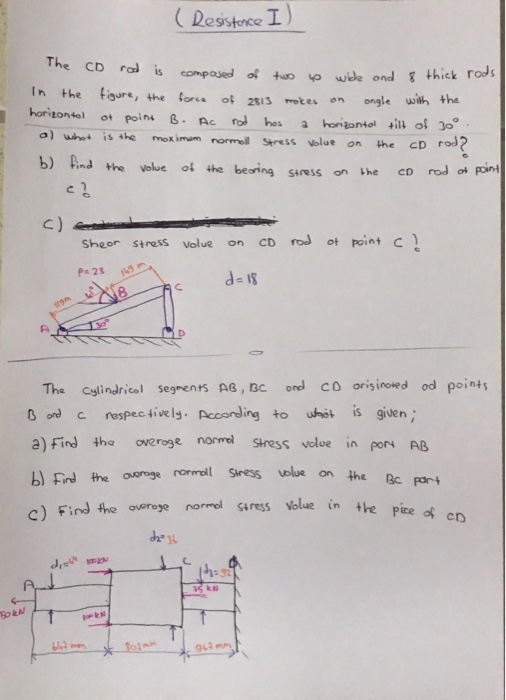 (Resistence I)
The CD rod is composed of two 40 wide and 8 thick rods
In the figure, the force of 2813 makes an angle with the
horizontal at point B. AC rod has a horizontal tilt of 30°.
a) what is the maximum normall stress value on the CD rod?
b) find the value of the bearing stress on the CD rod at point
c?
c)
Shear stress value on CD rod at point C?
P=23
149 m
B
C
d=18
119m
A
30°
D
The cylindrical segments AB, BC and CD orisinated od points
B and C respectively. According to what is given;
a) Find the average normal stress value in part AB
b) Find the average normall stress value on the BC part
c) Find the average normal stress value in the pice of CD
d2=36
100kN
C
A
25 kN
50kN
100kN
642 mm
802mm
962mm